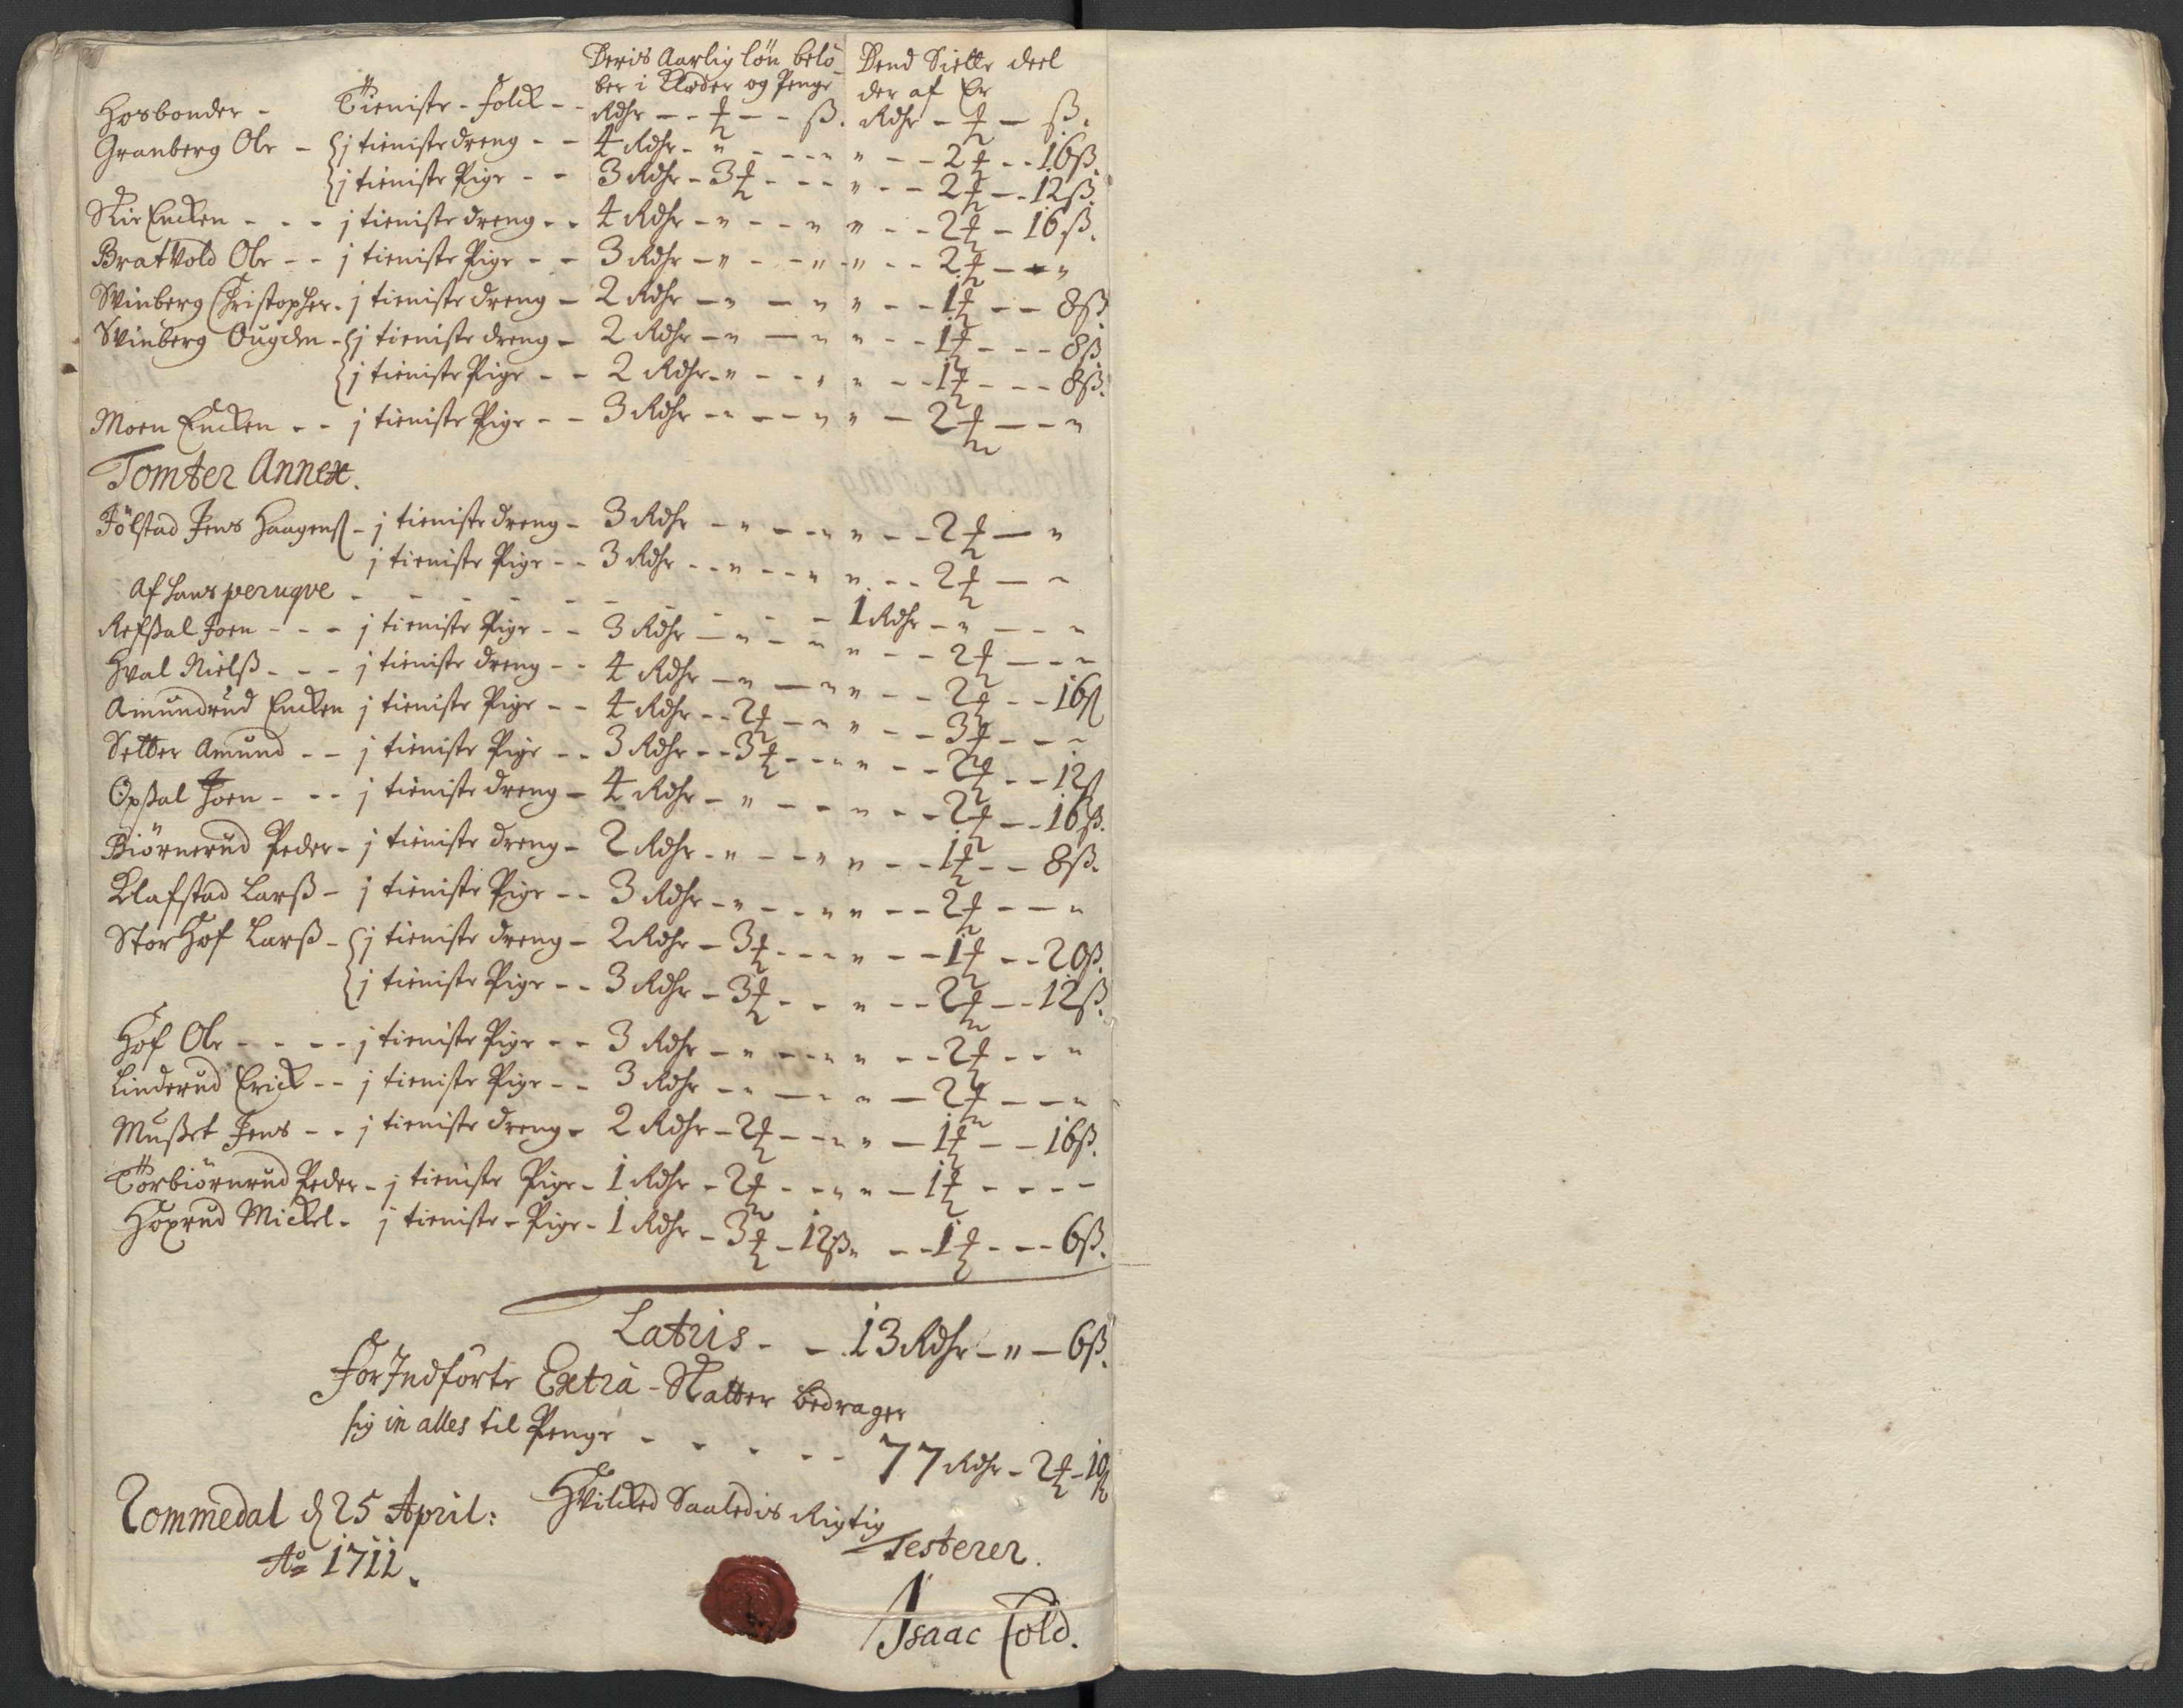 Deris Aarlig løn belø- Dend Siette deel
Hosbonder - Tieniste-folck - - ber i Klæder og Penge der af Er
Rdhr - - ƶ - - ß. Rdhr - ƶ - ß.
Granberg Ole - { j tieniste dreng - - 4 Rdhr - " - - - " " - - 2 ƶ - - 16 ß.
{ j tieniste Pige - - 3 Rdhr - 3 ƶ - - - " - - 2 ƶ - - 12 ß.
Skie Encken - - - j tieniste dreng - - 4 Rdhr - " - - " " - - 2 ƶ - 16 ß.
Bratvold Ole - - j tieniste Pige - - 3 Rdhr - " - - " " - - 2 ƶ - - "
Svinberg Christopher - j tieniste dreng - 2 Rdhr - " - " " - - 1 ƶ - - 8 ß
Svinberg Ougden - { j tieniste dreng - 2 Rdhr - " - " " - - 1 ƶ - - - 8 ß.
{ j tieniste Pige - - 2 Rdhr - " - - " " - - 1 ƶ - - - 8 ß.
Moen Encken - - j tieniste Pige - - 3 Rdhr - " - - " " - 2 ƶ - - "
Tomter Annex.
Fölstad Jens Haagenß - j tieniste dreng - 3 Rdhr - " - - " " - - 2 ƶ - "
j tieniste Pige - - 3 Rdhr - - " - - " " - - 2 ƶ - "
Af hans peruqve - - - - - - - - - - 1 Rdhr - " - - "
Refßal Joen - - - j tieniste Pige - - 3 Rdhr - " - " " - - 2 ƶ - - "
Hval Nielß - - - j tieniste dreng - - 4 Rdhr - " - " " - - 2 ƶ - - 16 ß
Amundrud Encken j tieniste Pige - - 4 Rdhr - - 2 ƶ - " " - - 3 ƶ - - "
Setter Amund - - j tieniste Pige - - 3 Rdhr - - 3 ƶ - - " " - - 2 ƶ - - 12 ß
Opßal Joen - - - j tieniste dreng - 4 Rdhr - " - - " - - 2 ƶ - - 16 ß.
Biörnerud Peder - j tieniste dreng - 2 Rdhr - " - - " " - - 1 ƶ - - 8 ß.
Klafstad Larß - j tieniste Pige - - 3 Rdhr - " - - " " - - 2 ƶ - - "
Stor Hof Larß - { j tieniste dreng - 2 Rdhr - 3 ƶ - - - " - - 1 ƶ - - 20 ß.
{ j tieniste Pige - - 3 Rdhr - 3 ƶ - - " - - 2 ƶ - - 12 ß.
Hof Ole - - - - j tieniste Pige - - 3 Rdhr - " - - " " - - 2 ƶ - - "
Linderud Erick - - j tieniste Pige - - 3 Rdhr - " - " " - 2 ƶ - - "
Mußet Jens - - j tieniste dreng - 2 Rdhr - 2 ƶ - - " " - 1 ƶ - - 16 ß.
Torbiörnrud Peder - j tieniste Pige - 1 Rdhr - 2 ƶ - - " " - 1 ƶ - - - -
Hoxrud Mickel - j tieniste - Pige - 1 Rdhr - 3 ƶ - 12 ß " - - 1 ƶ - - - 6 ß.
Latris - - 13 Rdhr - " - 6 ß.
For Indförte Extra - Skatter bedrager
sig in alles til Penge - - - - - 77 Rdhr - 2 ƶ - 10 ß
Tommedal d 25 April: Hvilcked Saaledis Rigtig
Ao 1711. Testerer.
Isaac Fold.